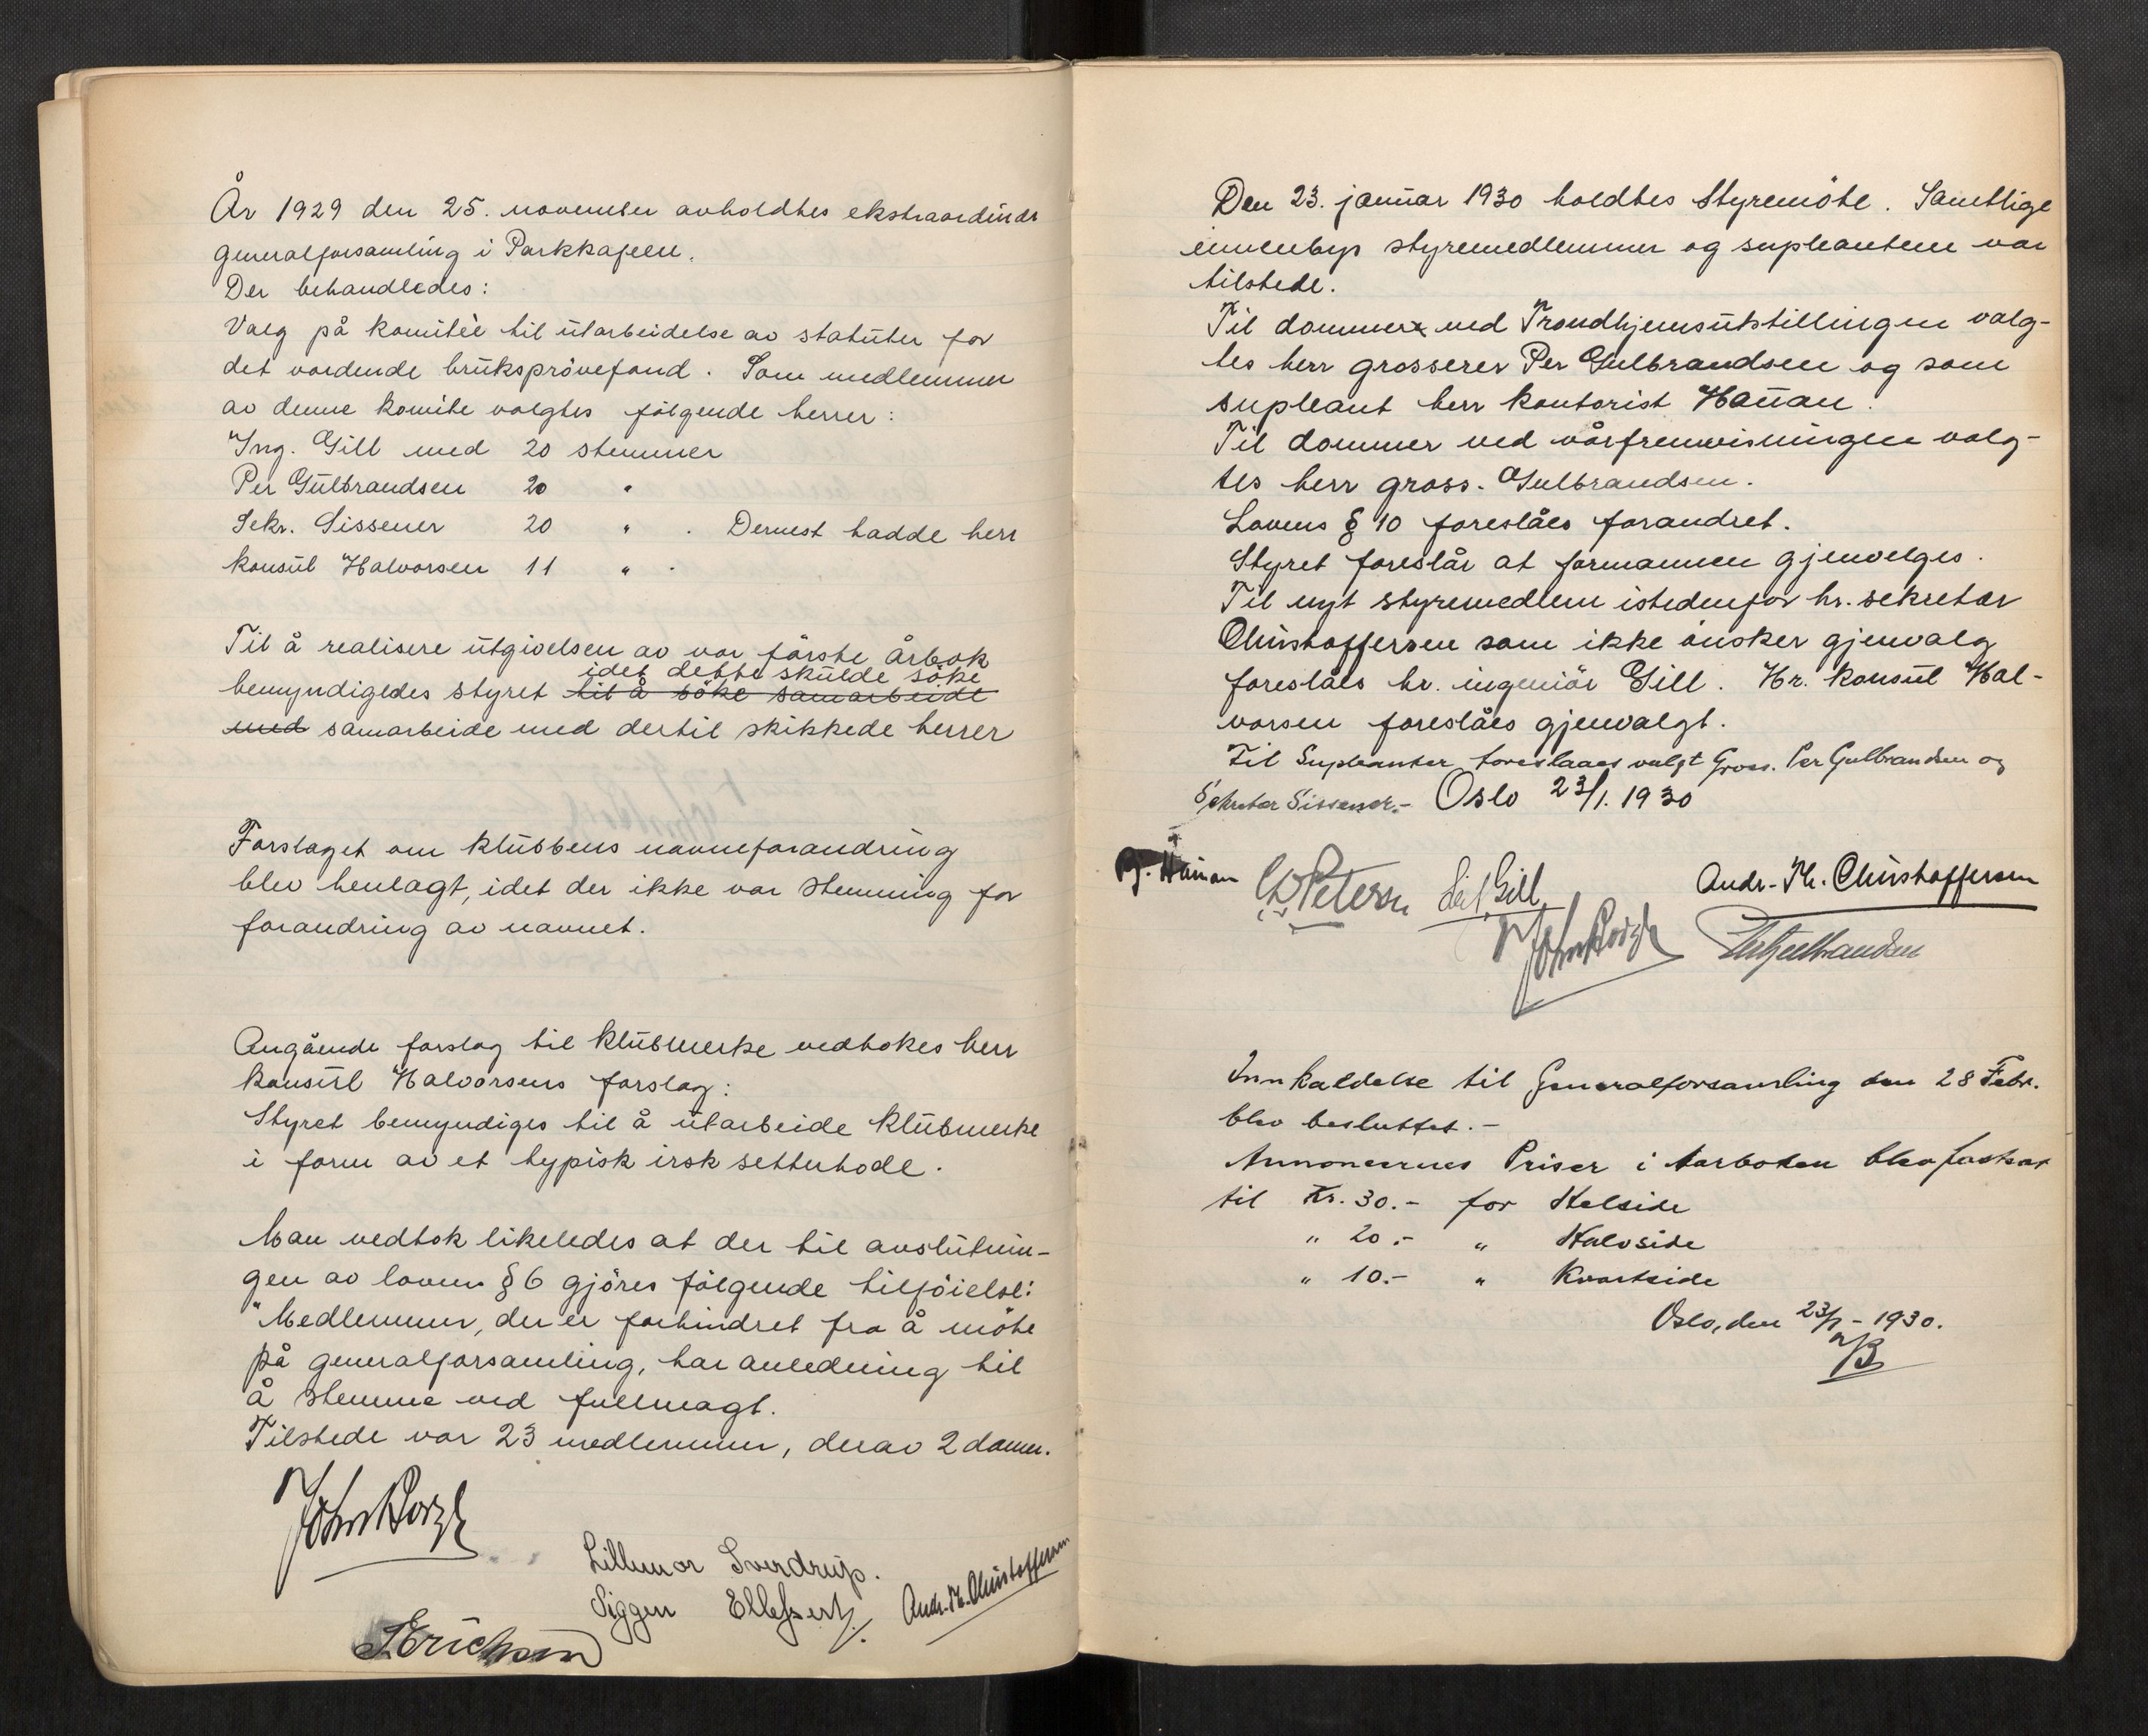 År 1929 den 25. november avholdtes ekstraordinær
generalforsamling i Parkkafeen.
Der behandledes:
Valg på komitèe til utarbeidelse av statuter for
det vordende bruksprövefond. Som medlemmer
av denne komite valgtes fölgende herrer:
Ing. Gill med 20 stemmer
Per Gulbrandsen 20 "
Sekr. Sissener 20 " . Dernest hadde herr
konsul Halvorsen 11 " .
Til å realisere utgivelsen av vor förste årbok
idet dette skulde söke
bemyndigedes styret til å söke samarbeide
med samarbeide med dertil skikkede herrer
Forslaget om klubbens navneforandring
blev henlagt, idet der ikke var stemning for
forandring av navnet.
Angående forslag til klubmerke vedtokes herr
konsul Halvorsens forslag:
Styret bemyndiges til å utarbeide klubmerke
i form av et typisk irsk setterhode.
Man vedtok likeledes at der til avslutnin-
gen av lovens § 6 gjöres fölgende tilföielse:
"Medlemmer, der er forhindret fra å möte
på generalforsamling, har anledning til
å stemme ved fullmagt.
Tilstede var 23 medlemmer, derav 2 damer.
Lillemor Sverdrup.
Siggen
Andr. Th. Christoffersen
Erichsen
Den 23. januar 1930 holdtes Styremöte. Samtlige
innenbys styremedlemmer og supleantene var
tilstede.
Til dommer ved Trondhjemsutstillingen valg-
tes herr grosserer Per Gulbrandsen og som
supleant herr kontorist Hauan.
Til dommer ved vårfremvisningen valg-
tes herr gross. Gulbrandsen.
Lovens § 10 foreslåes forandret.
Styret foreslår at formannen gjenvelges.
Til nyt styremedlem istedenfor hr. sekretær
Christoffersen som ikke önsker gjenvalg
foreslåes hr. ingeniör Gill. Hr. konsul Hal-
vorsen foreslåes gjenvalgt.
Til Supleanter foreslaaes valgt Gross. Per Gulbrandsen og
Sekretær Sissener.- Oslo 23/1. 1930
Hauan
Petersen
Leif Gill
Andr. Th. Christoffersen
Per Gulbrandsen
Innkaldelse til Generalforsamling den 28 Febr.
blev besluttet.-
Annoncernes Priser i Aarboken blev fastsat
til Kr. 30.- for Helside
" 20.- " Halvside
" 10.- " Kvartside
Oslo, den 23/1-1930.